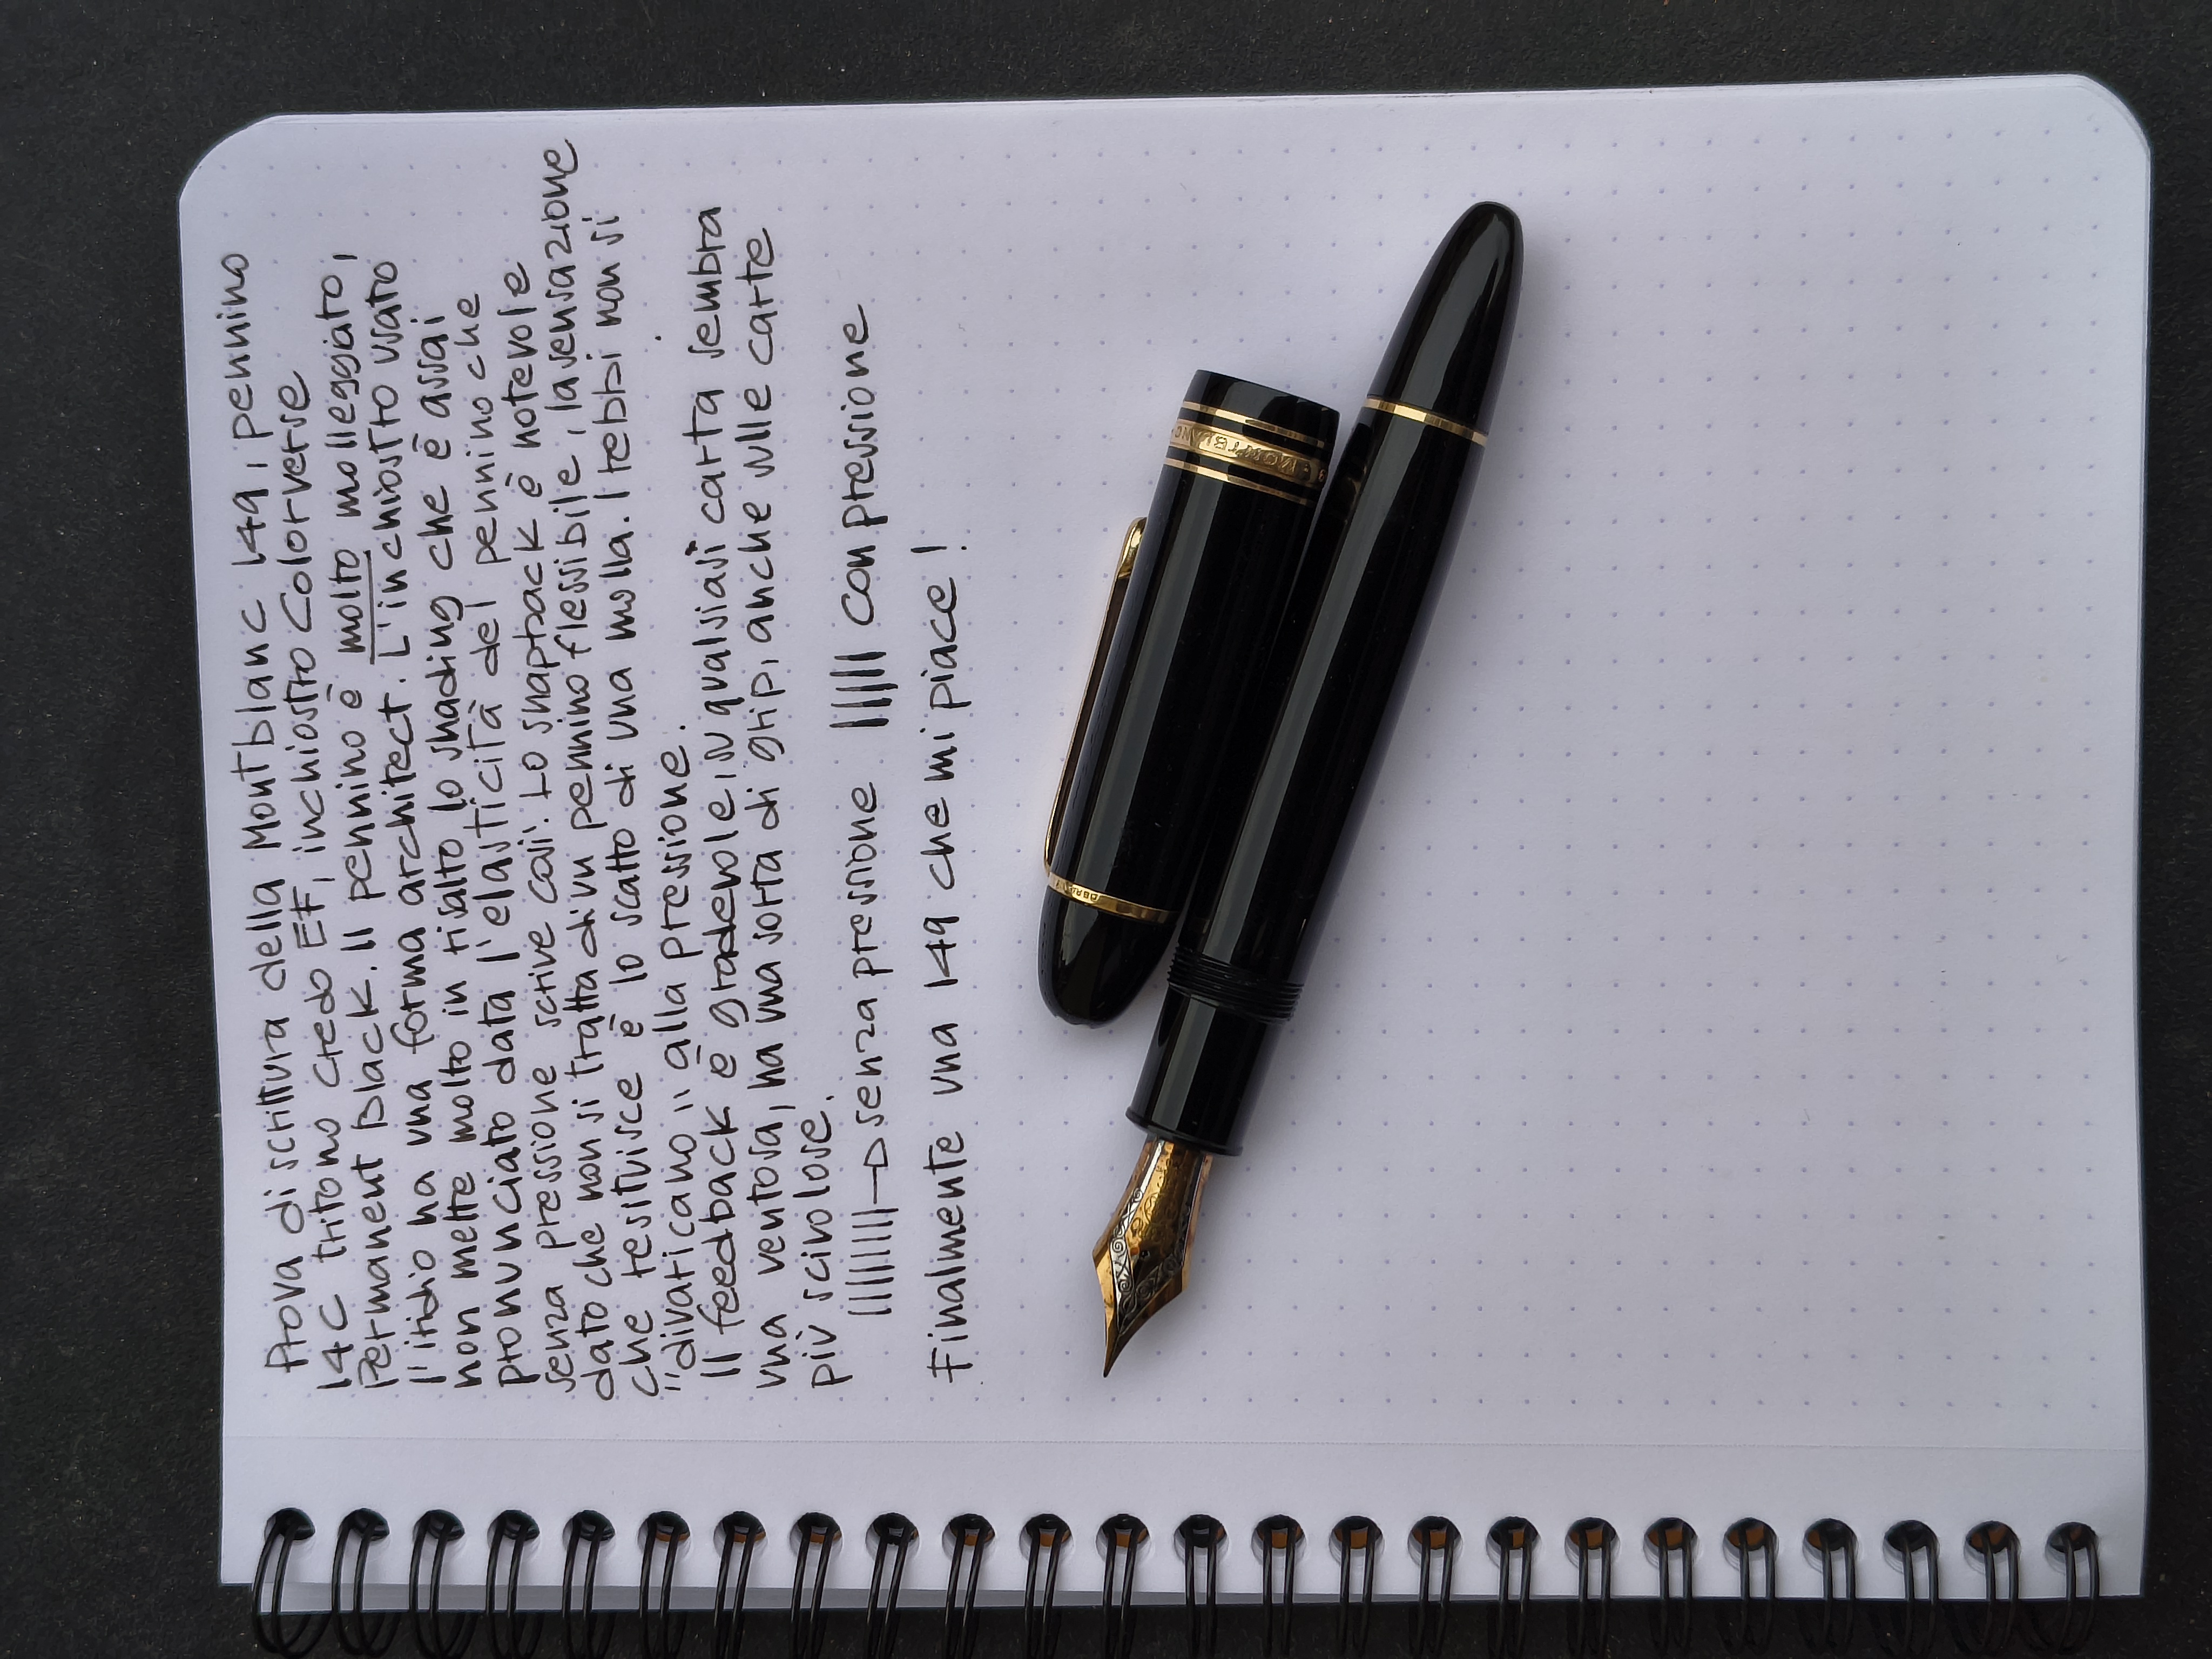 Prova di scrittura della Montblanc 149, pennino
14C tritono credo EF, inchiostro Colorverse
Permanent Black. Il pennino è molto molleggiato,
l'iridio ha una forma architect. L'inchiostro usato
non mette molto in risalto lo shading che è assai
pronunciato data l'elasticità del pennino che
senza pressione scrive così. Lo snapback è notevole
dato che non si tratta di un pennino flessibile, la sensazione
che resituisce è lo scatto di una molla. I rebbi non si
"divaricano" alla pressione.
Il feedback è gradevole, su qualsiasi carta sembra
una ventosa, ha una sorta di grip, anche sulle carte
più scivolose.
senza pressione con pressione
Finalmente una 149 che mi piace!
MONTBLANC